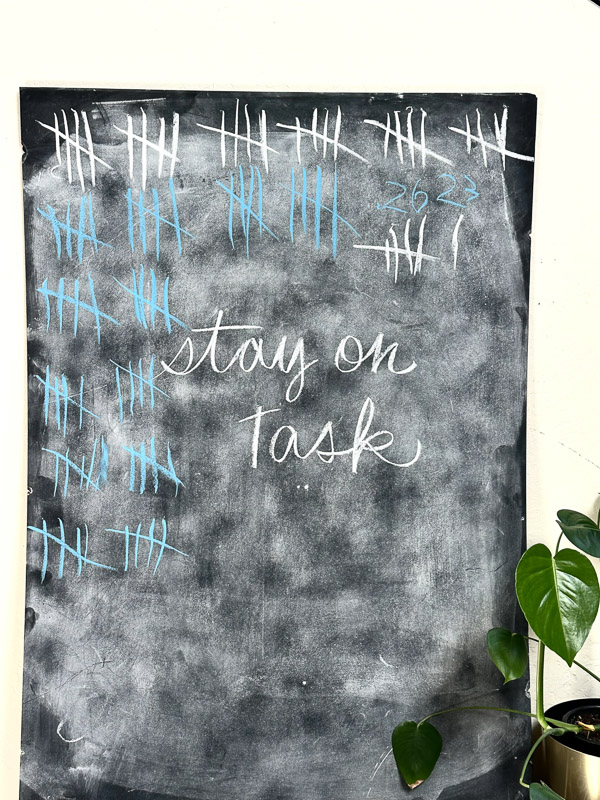 26 23
stay on
task